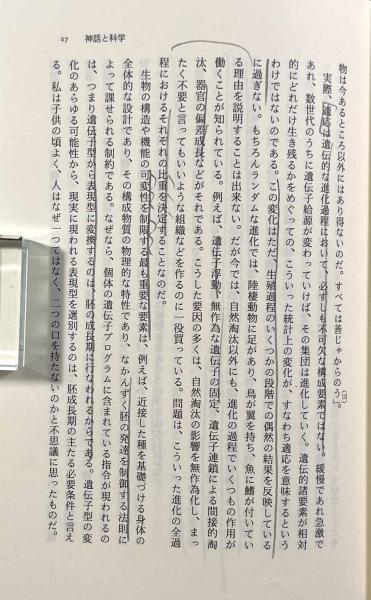 27 神話と科学
物は今あるところ以外にはあり得ないのだ。すべては善じゃからのう」。(13)
実際、適応は遺伝的な進化過程において、必ずしも不可欠な構成要素ではない。緩慢であれ急激で
あれ、数世代のうちに遺伝子給源が変わっていけば、その集団は進化していく。遺伝的諸要素が相対
的にどれだけ生き残るかをめぐっての、こういった統計上の変化が、すなわち適応を意味するという
わけではないのである。この変化はただ、生殖過程のいくつかの段階での偶然の結果を反映している
に過ぎない。もちろんランダムな進化では、陸棲動物に足があり、鳥が翼を持ち、魚に鰭が付いてい
る理由を説明することは出来ない。だが今では、自然淘汰以外にも、進化の過程でいくつもの作用が
働くことが知られている。例えば、遺伝子浮動、無作為な遺伝子の固定、遺伝子連鎖による間接的淘
汰、器官の偏差成長などがそれである。こうした要因の多くは、自然淘汰の影響を無作為化し、まっ
たく不要と言ってもいいような組織などを作るのに一役買っている。問題は、こういった進化の全過
程におけるそれぞれの比重を決定することなのだ。
生物の構造や機能の可変性を制限する最も重要な要素は、例えば、近接した種を基礎づける身体の
全体的な設計であり、その構成物質の物理的な特性であり、なかんずく胚の発達を制御する法則に
よって課せられる制約である。なぜなら、個体の遺伝子プログラムに含まれている指令が現われるの
は、つまり遺伝子型から表現型に変換するのは、胚の成長期に行なわれるからである。遺伝子型の変
化のあらゆる可能性から、現実に現われる表現型を選別するのは、胚成長期の主たる必要条件と言え
る。私は子供の頃よく、人はなぜ一つではなく、二つの口を持たないのかと不思議に思ったものだ。